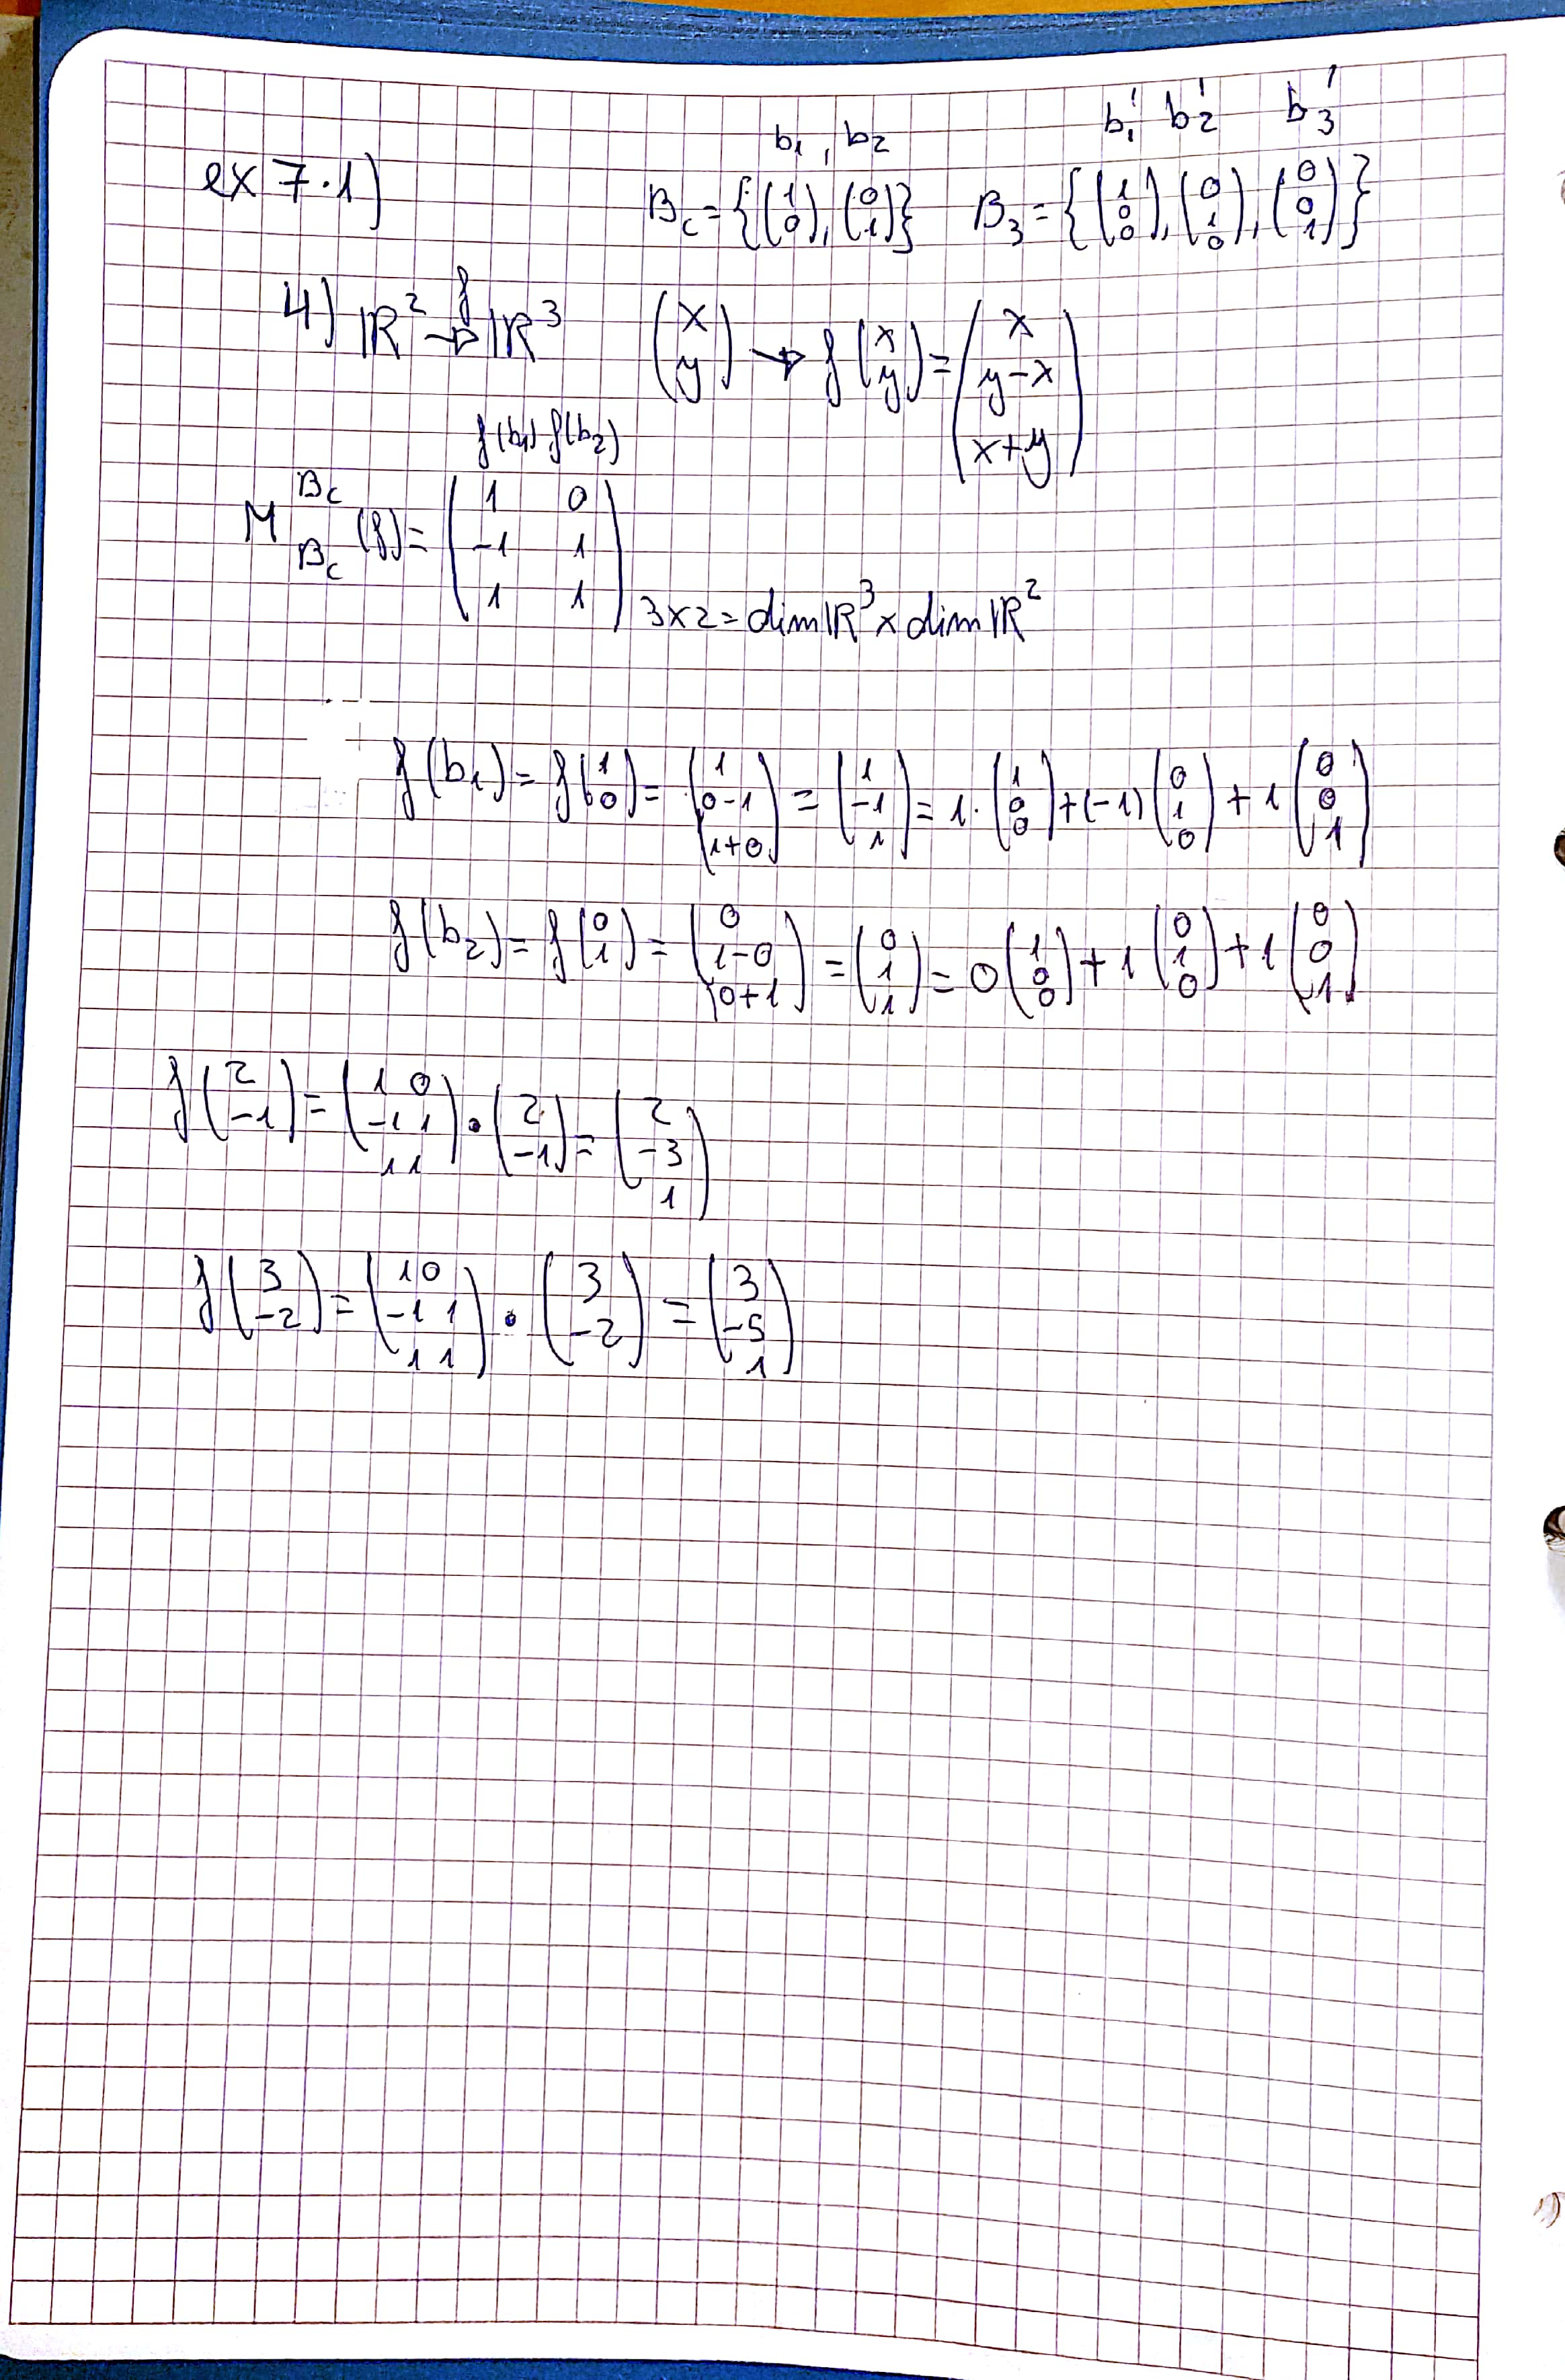 b₁, b₂ b₁' b₂' b₃'
ex 7.1) B_c = {(1 0), (0 1)} B_3 = {(1 0 0), (0 1 0), (0 0 1)}
4) ℝ² →f ℝ³ (x y) → f(x y) = (x y-x x+y)
f(b₁) f(b₂)
M B_c B_c (f) = (1 0 -1 1 1 1) 3x2 = dim ℝ³ x dim ℝ²
f(b₁) = f(1 0) = (1 0-1 1+0) = (1 -1 1) = 1·(1 0 0) + (-1)(0 1 0) + 1(0 0 1)
f(b₂) = f(0 1) = (0 1-0 0+1) = (0 1 1) = 0(1 0 0) + 1(0 1 0) + 1(0 0 1)
f(2 -1) = (1 0 -1 1 1 1)·(2 -1) = (2 -3 1)
f(3 -2) = (1 0 -1 1 1 1)·(3 -2) = (3 -5 1)